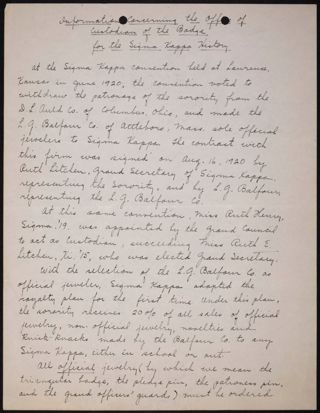 Information Concerning the Office of
Custodian of the Badge,
for the Sigma Kappa History
At the Sigma Kappa convention held at Lawrence,
Kansas in June 1920, the convention voted to
withdraw the patronage of the sorority from the
D.L. Auld Co. of Columbus, Ohio, and made the
L.G. Balfour Co. of Attleboro, Mass. sole official
jewelers to Sigma Kappa. The contract with
this firm was signed on Aug. 16, 1920 by
Ruth Litchen, Grand Secretary of Sigma Kappa,
representing the Sorority, and by L.G. Balfour,
representing the L.G. Balfour Co.
At this same convention, Miss Ruth Henry,
Sigma, '19, was appointed by the Grand Council
to act as Custodian, succeeding Miss Ruth E.
Litchen, '15, who was elected Grand Secretary.
With the selection of the L.G. Balfour Co. as
official jeweler, Sigma Kappa adopted the
royalty plan for the first time. Under this plan,
the sorority receives 20% of all sales of official
jewelry, non official jewelry, novelties and
Knick-Knacks made by the Balfour Co. to any
Sigma Kappa, either in school or out.
All official jewelry (by which we mean the
triangular badge, the pledge pin, the patroness pin,
and the grand officers' guards) must be ordered